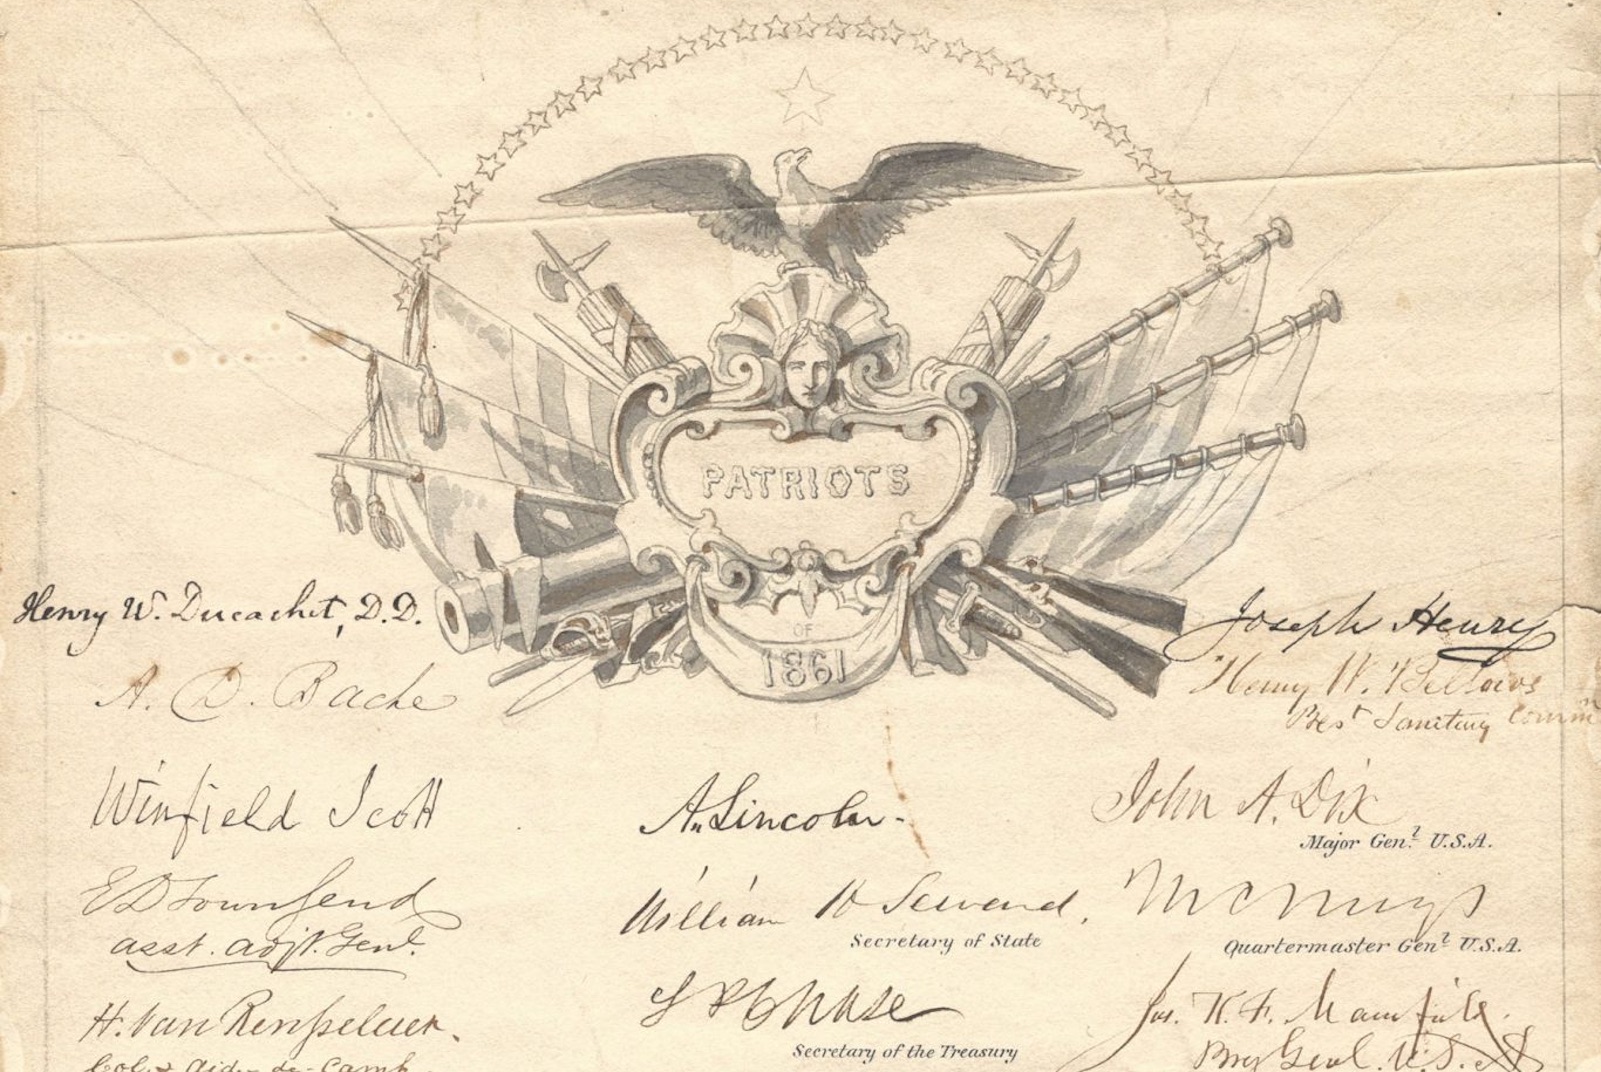 PATRIOTS
OF
1861
Henry W. Ducachet, D.D.
A. D. Bache
Winfield Scott
E D Townsend
asst. adjt. Genl.
H. Van Rensselaer.
Col & Aide-de-Camp
A. Lincoln.
William H Seward.
Secretary of State
S P Chase
Secretary of the Treasury
Joseph Henry
Henry W. Bellows
Pest Sanitary Commn
John A. Dix
Major Genl. U.S.A.
M C Meigs
Quartermaster Genl. U.S.A.
Jos. K. F. Mansfield.
Brig Genl. U.S.A